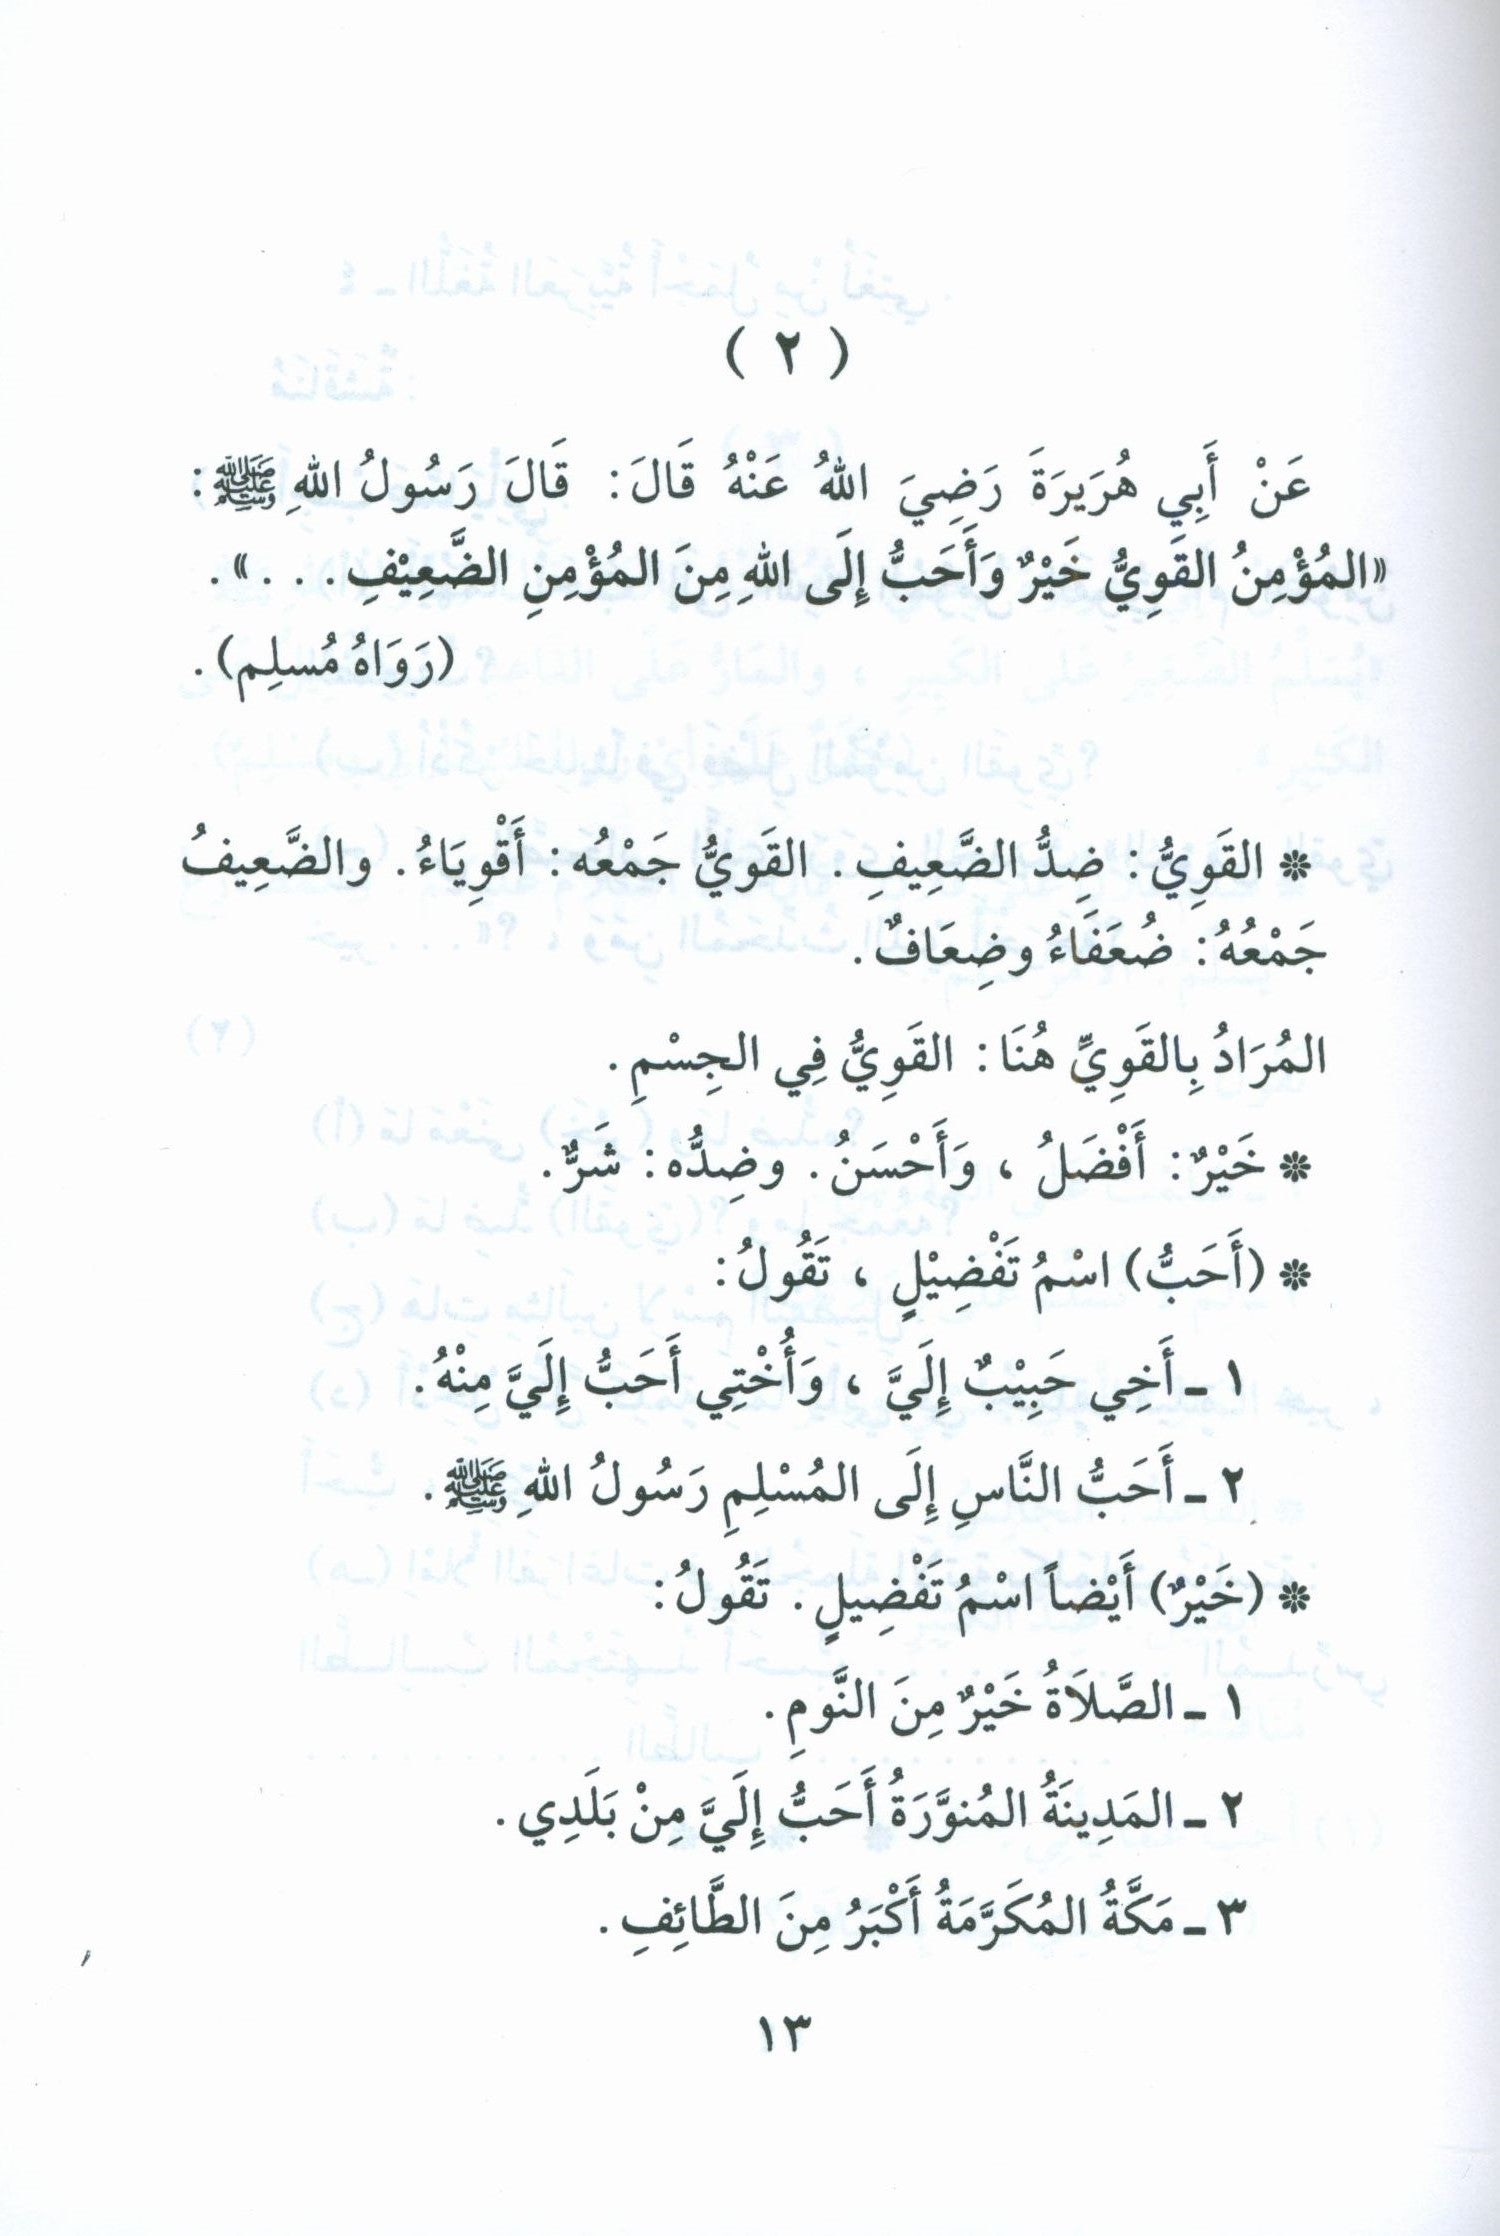 ( ٢ )
عَنْ أَبِي هُرَيرَةَ رَضِيَ اللهُ عَنْهُ قَالَ: قَالَ رَسُولُ اللهِ ﷺ:
«المُؤْمِنُ القَوِيُّ خَيْرٌ وَأَحَبُّ إِلَى اللهِ مِنَ المُؤْمِنِ الضَّعِيْفِ. . .».
(رَوَاهُ مُسلِم).
* القَوِيُّ: ضِدُّ الضَّعِيفِ. القَوِيُّ جَمْعُه: أَقْوِيَاءُ. والضَّعِيفُ
جَمْعُهُ: ضُعَفَاءُ وضِعَافٌ.
المُرَادُ بِالقَوِيِّ هُنَا: القَوِيُّ فِي الجِسْمِ.
* خَيْرٌ: أَفْضَلُ ، وَأَحْسَنُ. وضِدُّه: شَرٌّ.
* (أَحَبُّ) اسْمُ تَفْضِيْلٍ ، تَقُولُ:
١ - أَخِي حَبِيْبٌ إِلَيَّ ، وَأُخْتِي أَحَبُّ إِلَيَّ مِنْهُ.
٢ - أَحَبُّ النَّاسِ إِلَى المُسْلِمِ رَسُولُ اللهِ ﷺ.
* (خَيْرٌ) أَيْضاً اسْمُ تَفْضِيلٍ. تَقُولُ:
١ - الصَّلَاةُ خَيْرٌ مِنَ النَّومِ.
٢ - المَدِينَةُ المُنوَّرَةُ أَحَبُّ إِلَيَّ مِنْ بَلَدِي.
٣ - مَكَّةُ المُكَرَّمَةُ أَكْبَرُ مِنَ الطَّائِفِ.
١٣